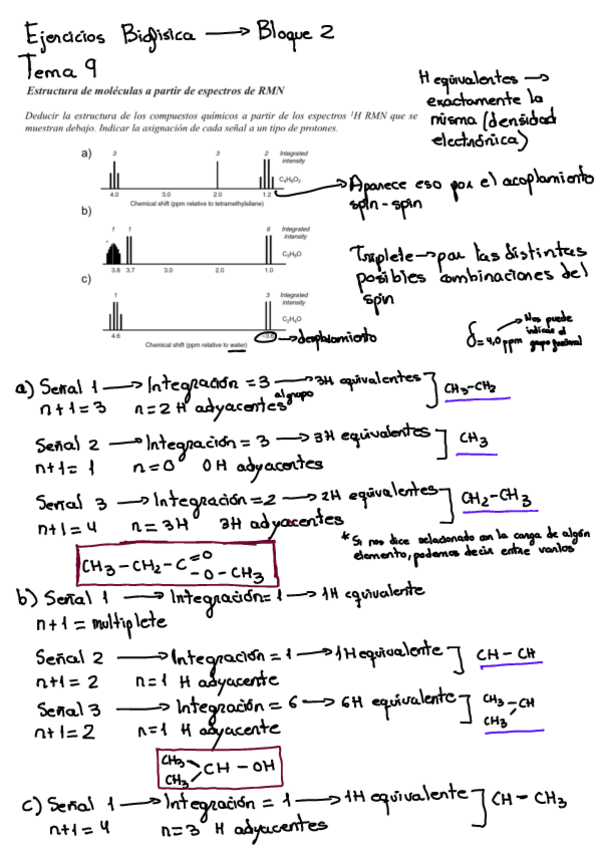 Ejercicios Biofísica → Bloque 2
Tema 9
Estructura de moléculas a partir de espectros de RMN
Deducir la estructura de los compuestos químicos a partir de los espectros ¹H RMN que se
muestran debajo. Indicar la asignación de cada señal a un tipo de protones.
H equivalentes →
exactamente la
misma (densidad
electrónica)
a)
3 3 2 Integrated
intensity
C₄H₈O₂
4.0 3.0 2.0 1.2
Chemical shift (ppm relative to tetramethylsilane)
→ Aparece eso por el acoplamiento
spin-spin
b)
1 1 6 Integrated
intensity
C₃H₈O
3.8 3.7 3.0 2.0 1.0
Triplete → por las distintas
posibles combinaciones del
spin
c)
1 3 Integrated
intensity
C₂H₄O
4.6
Chemical shift (ppm relative to water)
→ desplazamiento
δ = 4,0 ppm
→ Nos puede
indicar el
grupo funcional
a) Señal 1 → Integración = 3 → 3H equivalentes ] CH₃-CH₂
n+1 = 3 n = 2 H adyacentes al grupo
Señal 2 → Integración = 3 → 3H equivalentes ] CH₃
n+1 = 1 n = 0 0H adyacentes
Señal 3 → Integración = 2 → 2H equivalentes ] CH₂-CH₃
n+1 = 4 n = 3H 3H adyacentes
* Si nos dice relacionado con la carga de algún
elemento, podemos decir entre varios
CH₃-CH₂-C=O
-O-CH₃
b) Señal 1 → Integración = 1 → 1H equivalente
n+1 = multiplete
Señal 2 → Integración = 1 → 1H equivalente ] CH-CH
n+1 = 2 n = 1 H adyacente
Señal 3 → Integración = 6 → 6H equivalente ] CH₃-CH
CH₃
n+1 = 2 n = 1 H adyacente
CH₃
CH₃ > CH-OH
c) Señal 1 → Integración = 1 → 1H equivalente ] CH-CH₃
n+1 = 4 n = 3 H adyacentes